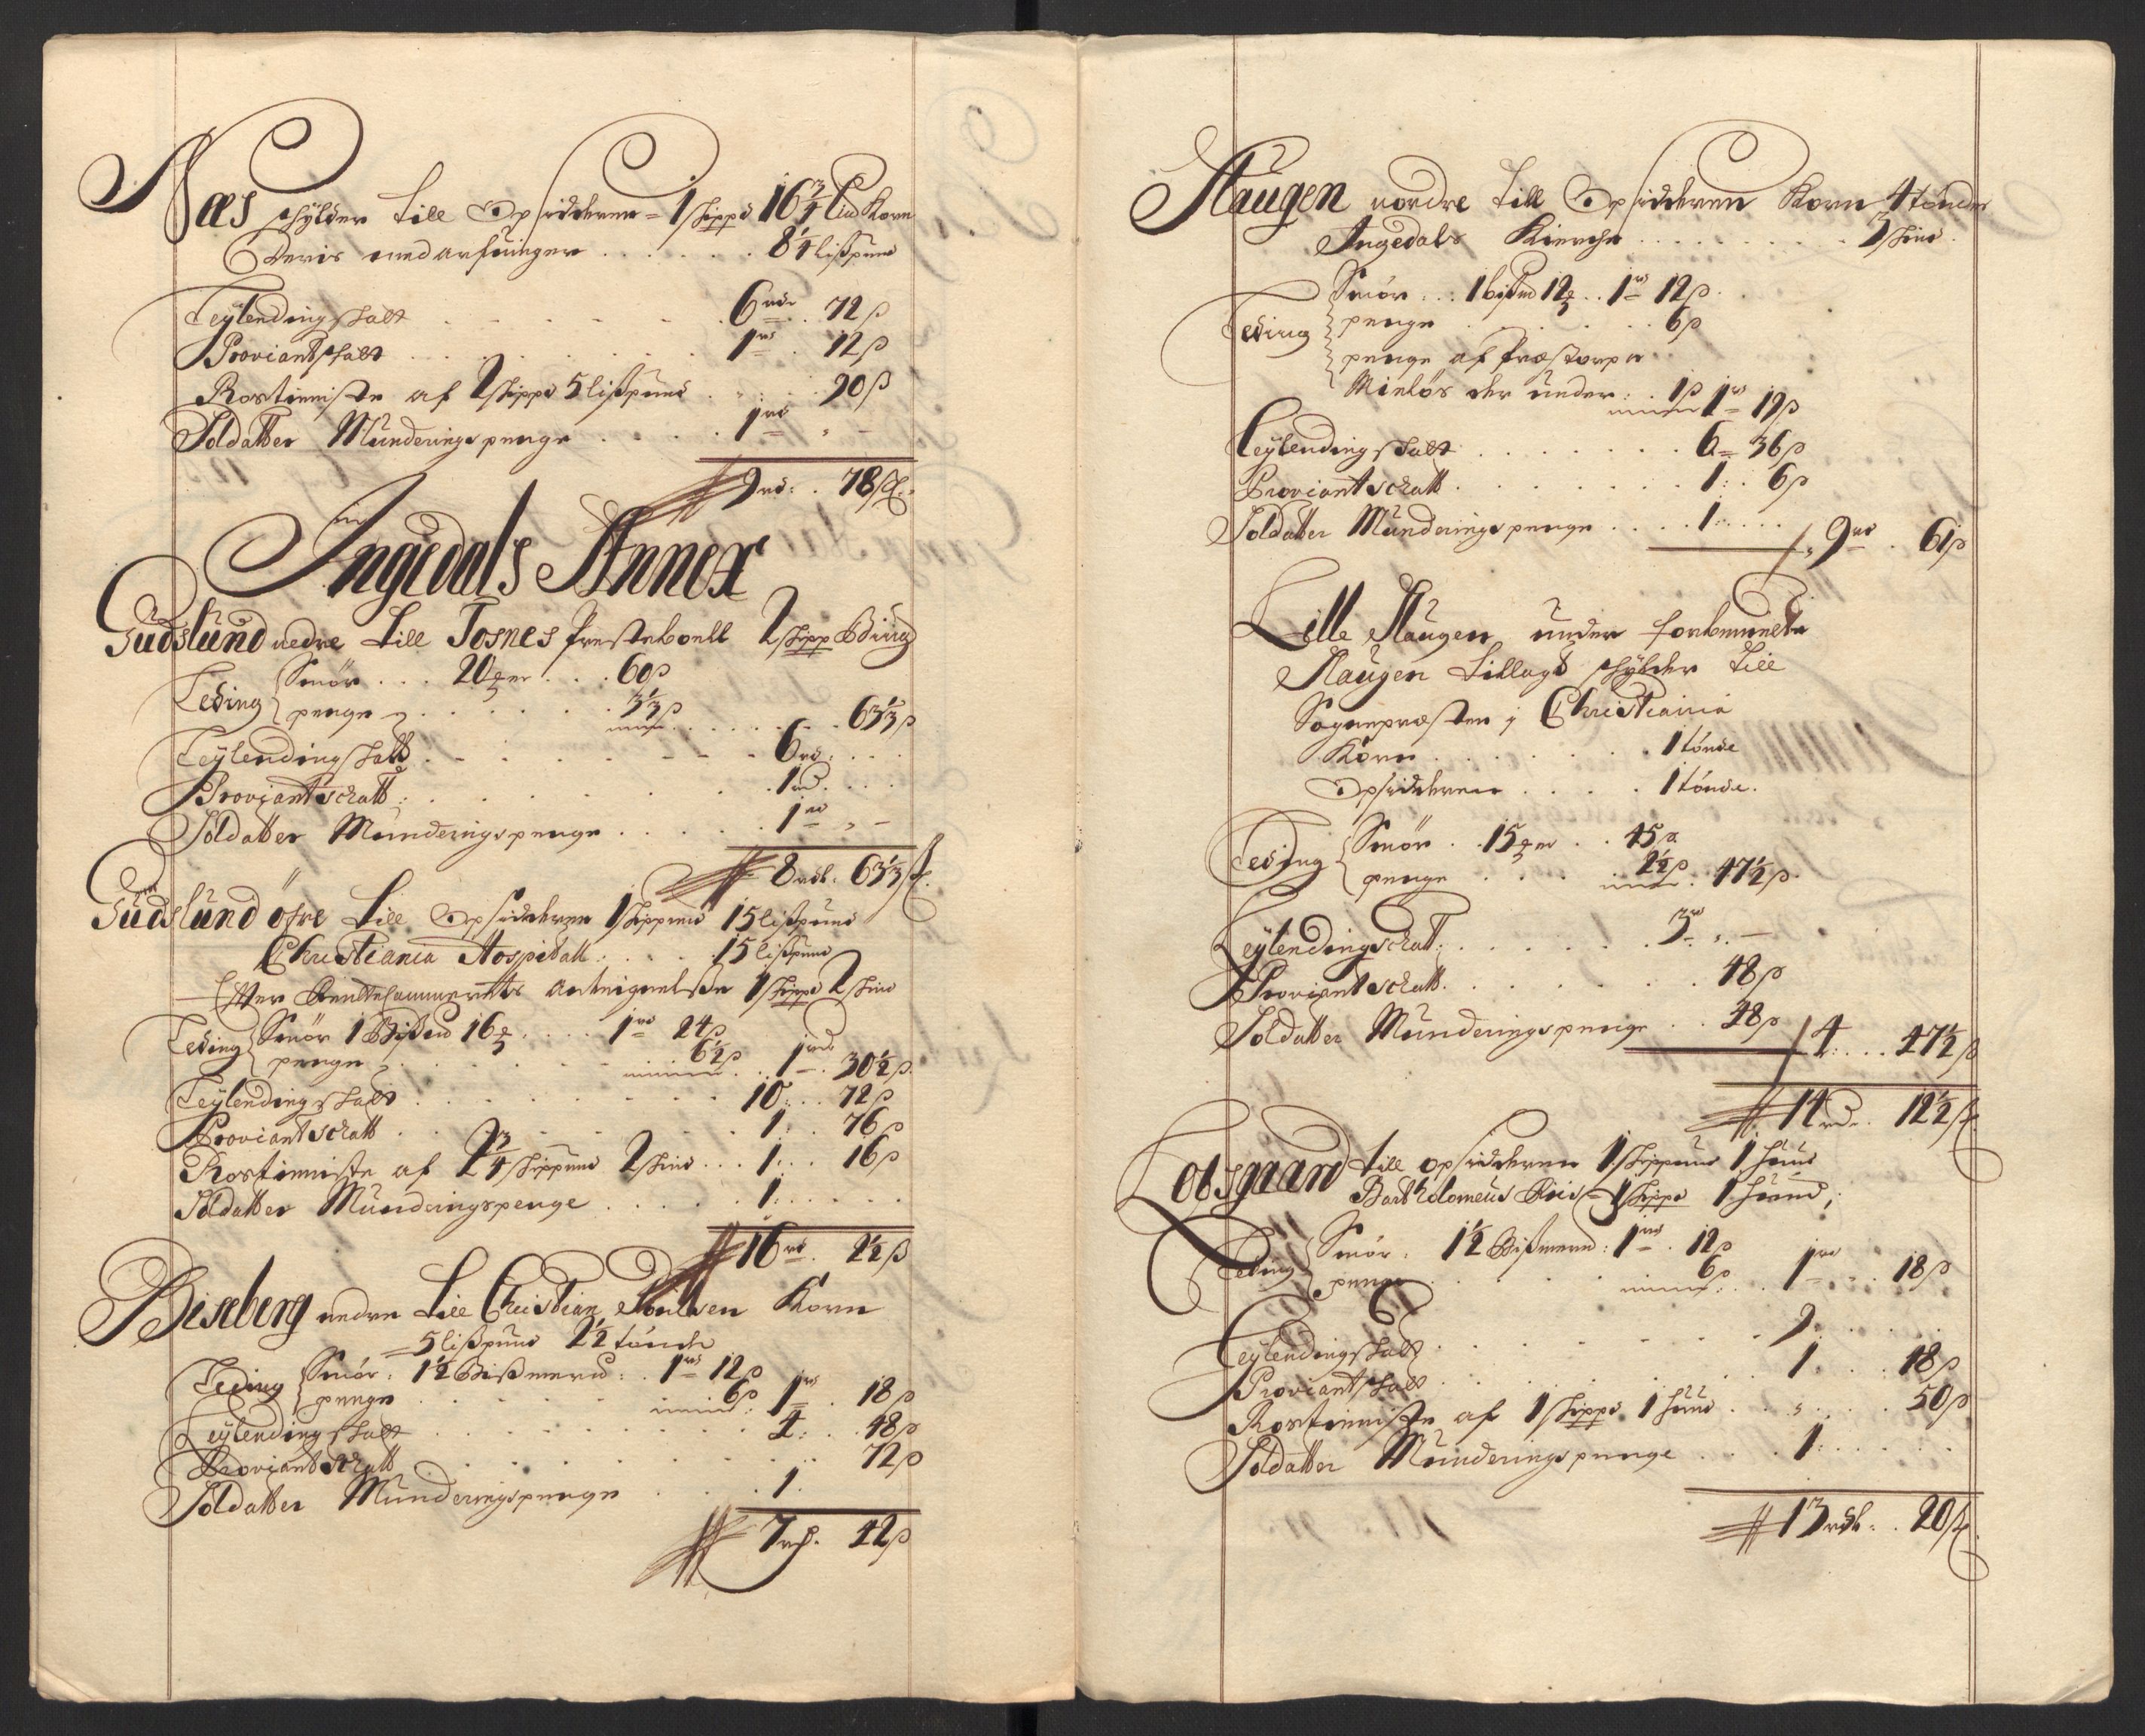 Næs schylder till Opsidderen 1 skippd 16¾ Lisd Korn
Deris medarfvinger . . . . . 8¼ lißpund
Leylending skatt . . . . 6 rdr . 72 ß
Proviantskatt . . . . . 1 rd . 12 ß
Rostieniste af 2 skippd 5 lißpund . . . 90 ß
Soldatter Munderings penge . . . . 1 rd „ -
9 rd: . 78 ß.
Ingedals Annex
Gudslund nedre till Tosnes Presteboell 2 skipp Ctting
Teding Smör . . . 20 ℔er . . . 60 ß
penge . . . . . 3⅓ ß . . . . 63⅓ ß
Leylending skatt . . . . 6 rd: . . .
Proviant schatt: . . . . . 1 rd . . .
Soldatter Munderings penge . . . . . 1 rd „ -
8 rdl. 63⅓ ß.
Gudslund öfre till Opsidderen 1 skippund 15 lißpund
Christiania Hospitall: . . . . 15 lißpund
Efter Rentekammerets Anteignelße 1 skippd 2 skind
Teding Smör 1 Bißmd 16 ℔ . . . . 1 rd 24 ß
penge . . . . . 6½ ß 1 rd - . 30½ ß.
Leylending skatt . . . . . 10 . . . 72 ß
Proviant schatt . . . . . 1: . . 76 ß
Rostieniste af 2¾ skippund 2 skind . . . 1: . . 16 ß
Soldatter Munderingspenge . . . . . 1: . . . .
16 rd . 2½ ß
Biseberg nedre till Christian Poulsen Korn
5 lißpund 2½ tönde
Teding Smör: 1½ Bißmerd: . 1 rd 12 ß
penge . . . . . 6 ß 1 rd . 18 ß
Leylending skatt . . . . . 4: . . 48 ß
Proviant schatt . . . . . 72 ß
Soldatter Munderingspenge . . . 1.
7 rd. 42 ß
Haugen nordre till Opsidderen Korn 4 tönder
Ingedals Kierche . . . . . . . 3 skind.
Teding Smör . . . 1 bißmd 12 ℔ . . 1 rd 12 ß.
penge . . . . . . 6 ß
penge af Præstorp
Mielös der under: . 1 ß 1 rd 19 ß
Leylending skatt . . . . . . . 6 = 36 ß
Proviant schatt . . . . . . . 1: . 6 ß
Soldatter Munderings penge . . . . 1: . . . . 9 rd . 61 ß
Lille Haugen under forbemelte
Haugen tillagt schylder till
Sognepræsten j Christiania
Korn . . . . . . 1 tönde
Opsidderen . . . . 1 tönde.
Teding Smör . . 15 ℔er . . 45 ß
penge . . . . 2½ ß . 47½ ß.
Leylending schatt: . . . . . . 3 rd „ -
Proviant schatt . . . . . . . 48 ß
Soldatter Munderings penge . . 48 ß 4: . . . 47½ ß
14 rd . 12½ ß.
Lobsgaard till opsidderen 1 skippund 1 Huud
Bartholomeus 1 skippd 1 Huud;
Teding Smör . 1½ Bißmerd: 1 rd . 12 ß
penge . . . . . 6 ß . . 1 rd . . 18 ß
Leylending skatt . . . . . . 9 . . . .
Proviant skatt . . . . . . 1. . . . 48 ß
Rostieniste af 1 skippd. 1 Huud . . „ . . . 50 ß
Soldatter Munderings penge . . . 1. . . . .
13 rdl. . 20 ß.